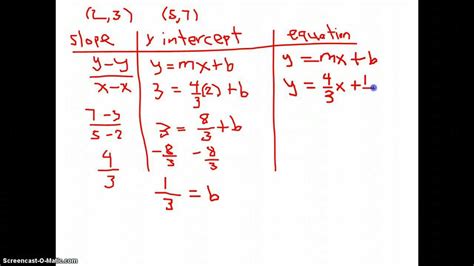 (2,3) (5,7)
slope y intercept equation
y-y/x-x y=mx+b y=mx+b
7-3/5-2 3=4/3(2)+b y=4/3x+1
4/3 3=8/3+b
-8/3 -8/3
1/3=b
Screencast-O-Matic.com